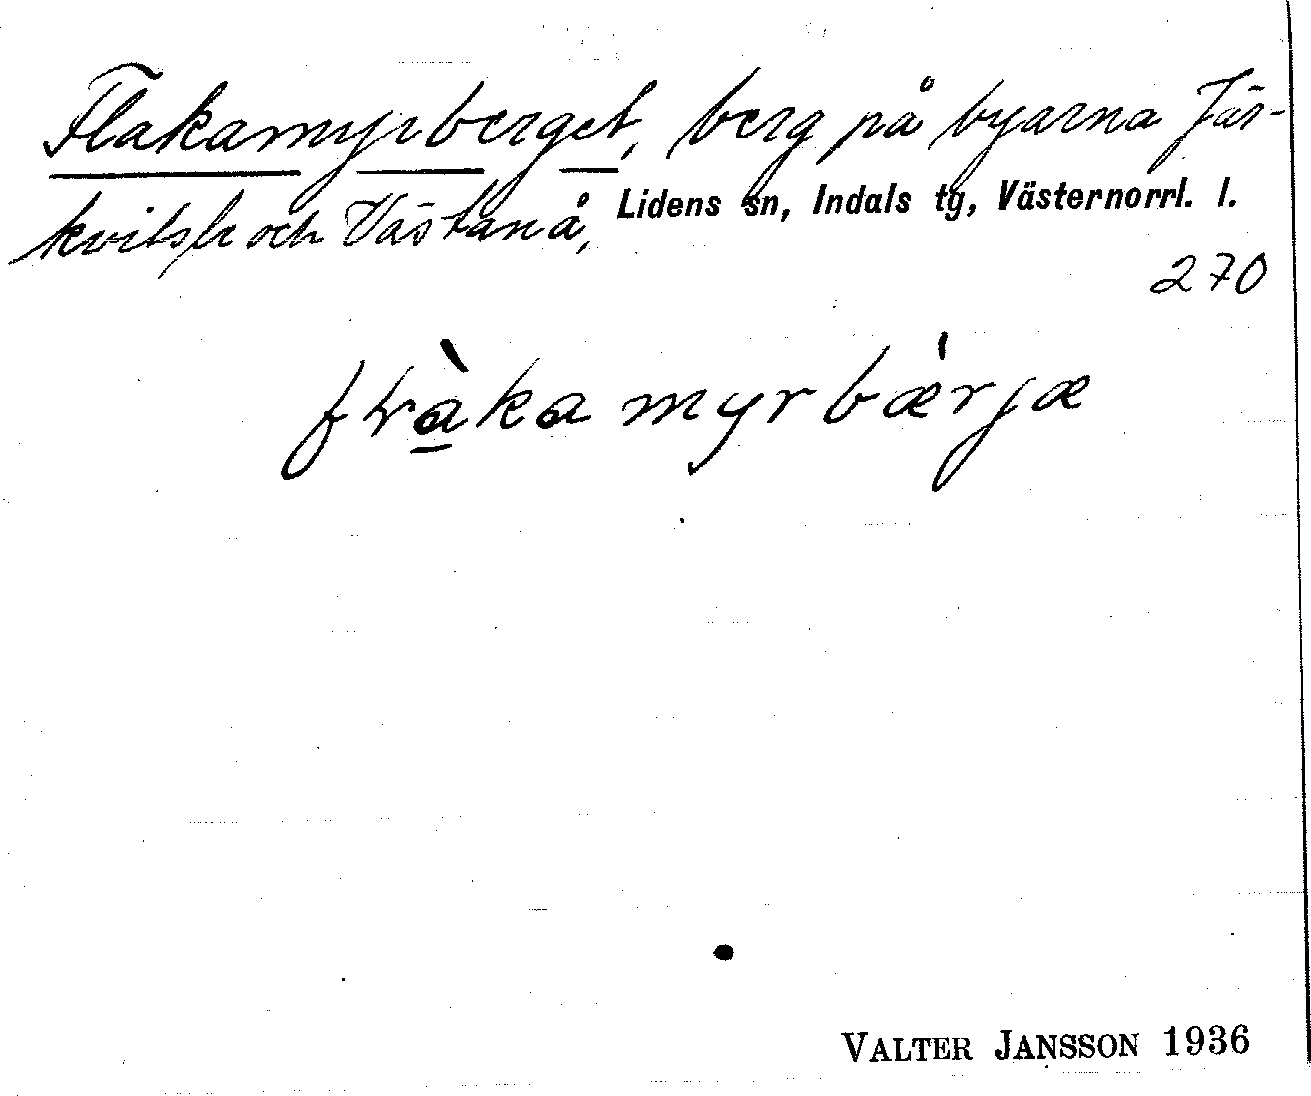 Flakamyrberget, berg på byarna Jär-
kvitsle och Västanå, Lidens sn, Indals tg, Västernorrl. l.
270
fłàkamyrbǽrjæ
VALTER JANSSON 1936